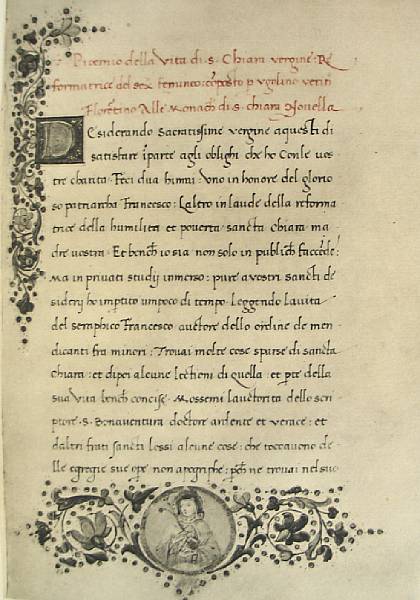 Proemio della Vita di .S. Chiara vergine Re
formatrice del sex femineo: cōposto p ugolino verini
Florētino Alle Monach di .s. chiara Novella
Desiderando Sacratissime vergine aquesti di
satisfare īparte agli oblighi che ho Con le vos
tre charita. Feci dua himni. Uno in honore del glorio
so patriarcha Francesco: L'altro in laude della reforma
trice della humilita et poverta sancta Chiara ma
dre vostra. Et bench io sia non solo in publich faccēde:
Ma in privati studij inmerso: pure a vostri sancti de
siderij ho impartito umpoco di tempo. Leggendo la vita
del seraphico Francesco auctore dello ordine de men
dicanti fra minori: Trovai molte cose sparse di sancta
Chiara: et dipoi alcune lectioni di quella. et pte della
sua vita bench concise. Mossemi lauctorita dello scri
ptore .S. Bonaventura doctore ardente et verace: et
daltri frati sancti lessi alcune cose: che toccavono de
lle egregie sue ope non apogriphe: pch ne trovai nel suo